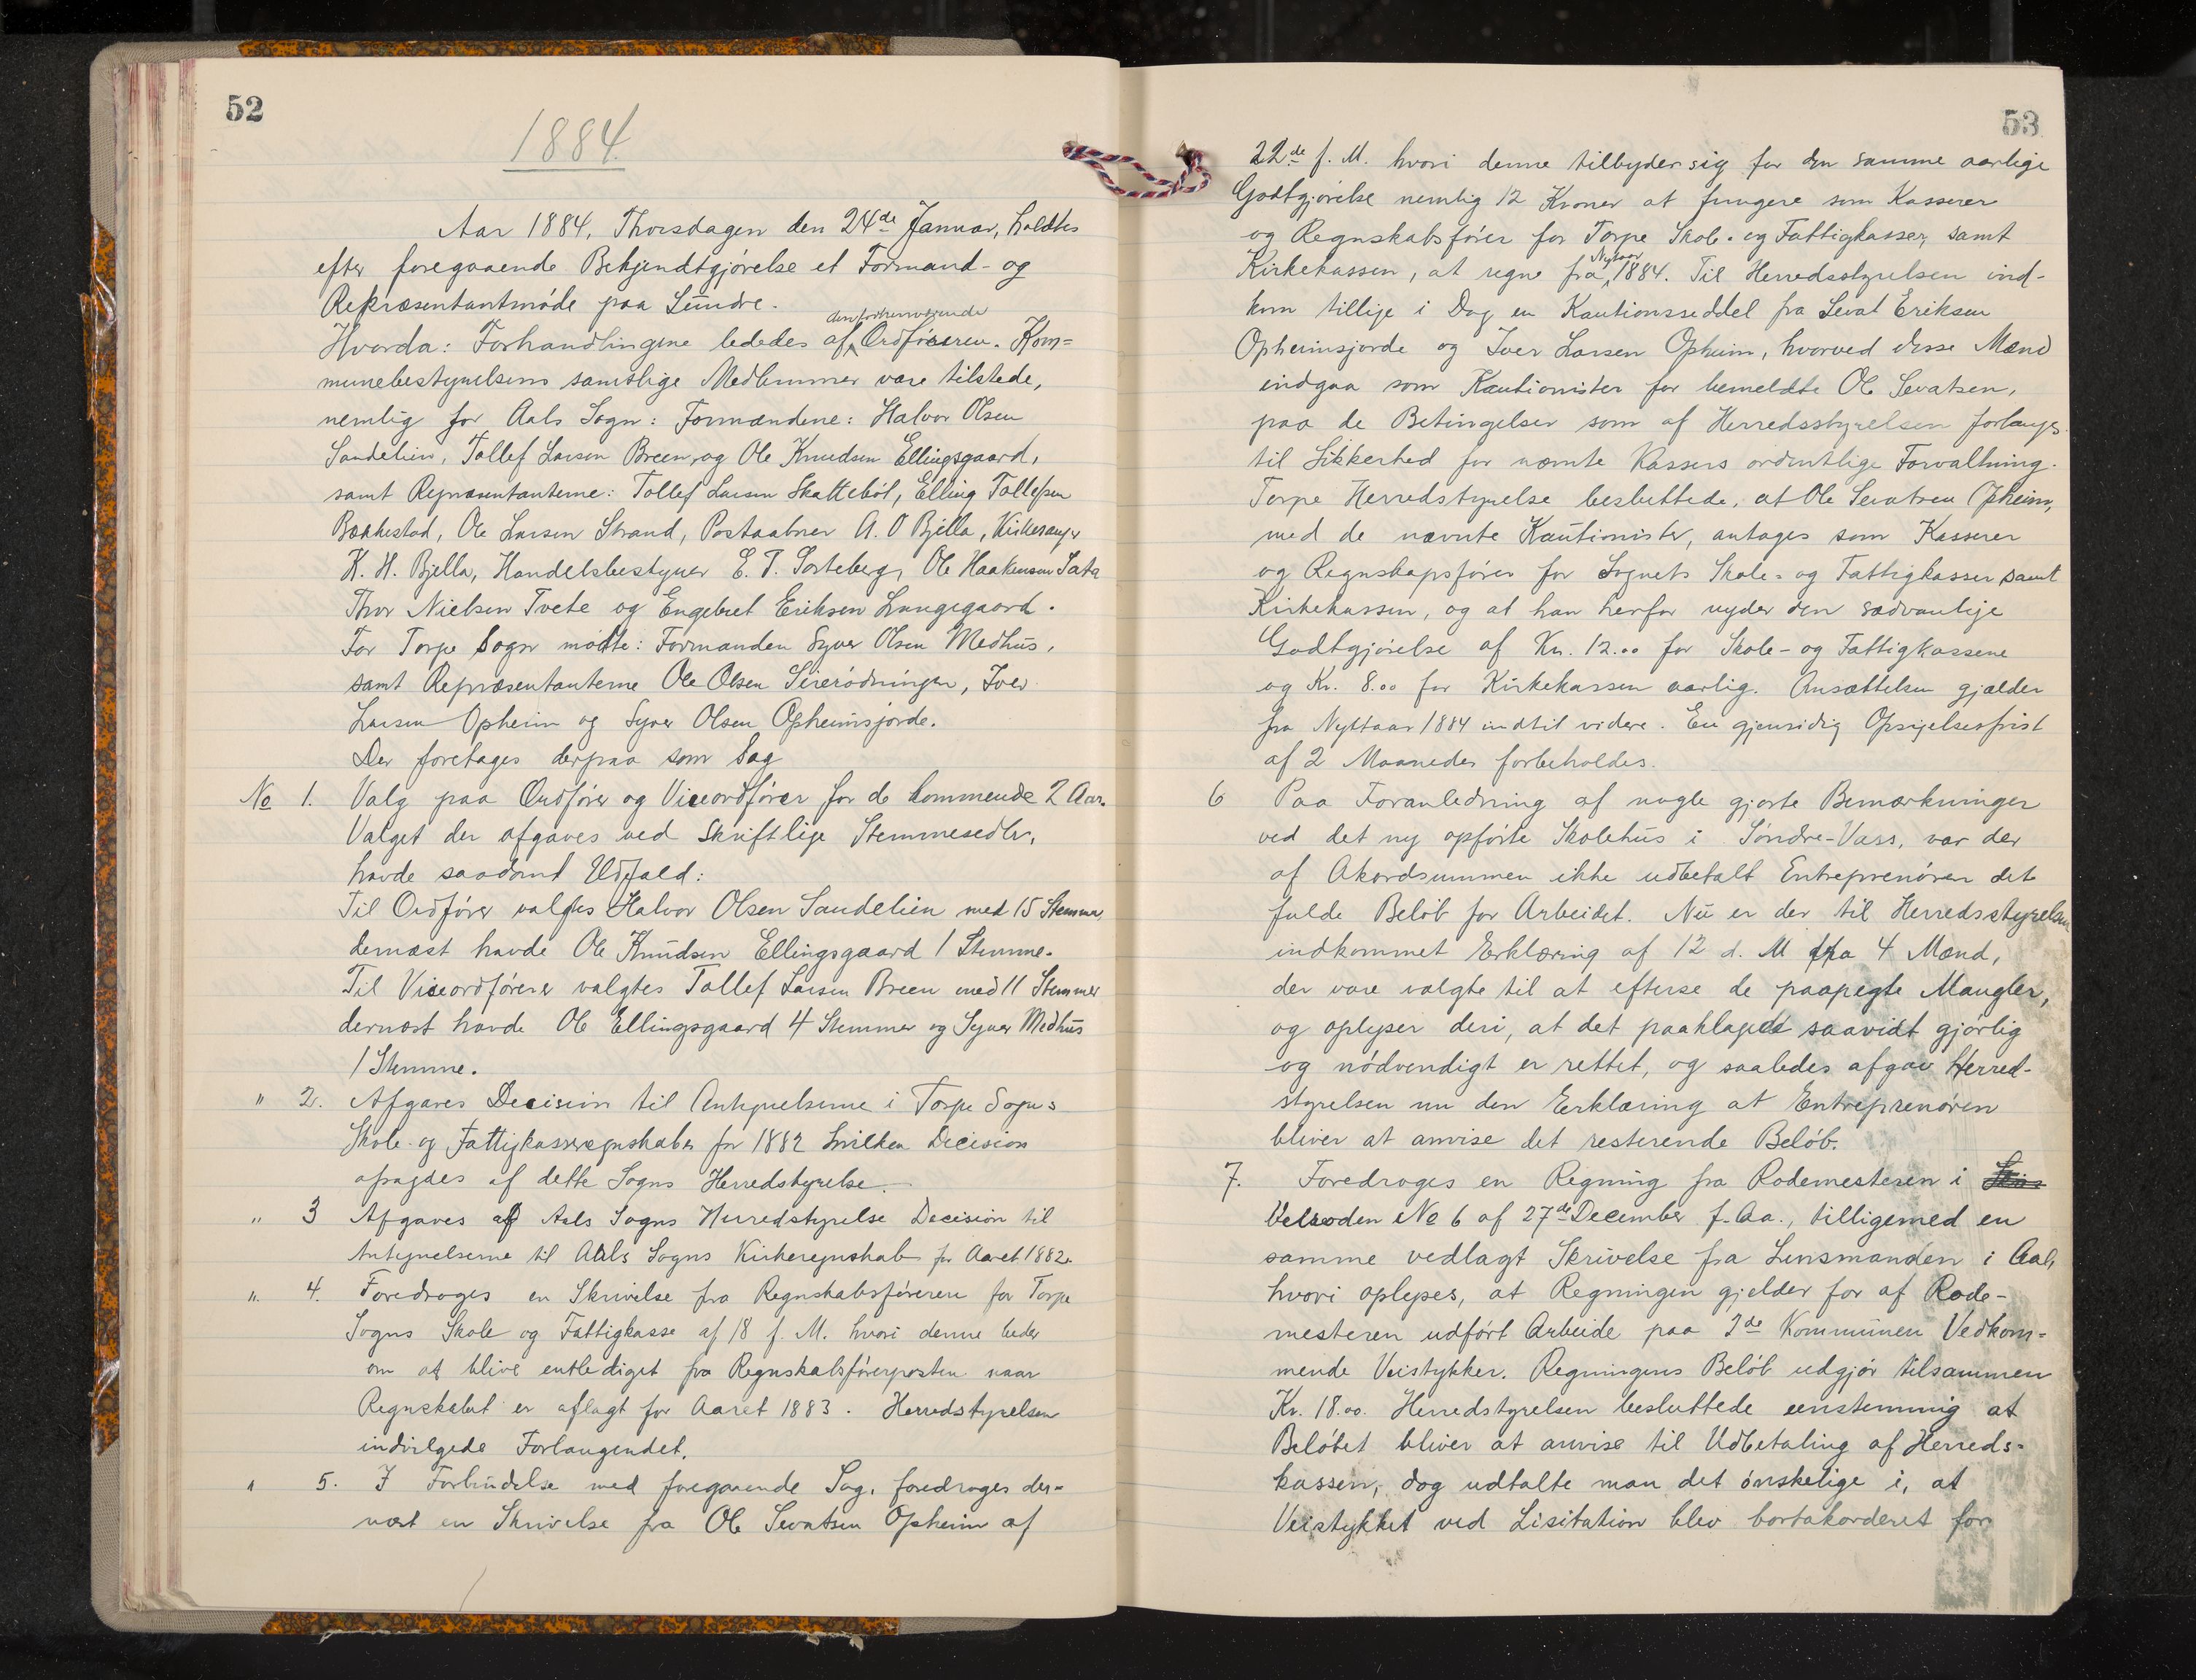 52
1884.
Aar 1884, Thorsdagen den 24de Januar, holdtes
efter foregaaende Bekjendtgjórelse et Formand- og
Repræsentantmóde paa Sundre.
den forhenværende
Hvorda: Forhandlingene lededes af Ordfóreren. Kom=
munebestyrelsens samtlige Medlemmer vare tilstede,
nemlig for Aals Sogn: Formændene: Halvor Olsen
Sandelien, Tollef Larsen Breen, og Ole Knudsen Ellingsgaard,
samt Repræsentanterne: Tollef Larsen Skatteból, Elling Tollefsen
Bakkestad, Ole Larsen Strand, Postaabner A. O Bjella, Kirkesanger
K. H. Bjella, Handelsbestyrer E. T. Sorteberg, Ole Haakensen Sata
Thor Nielsen Tvete og Engebret Eriksen Lungegaard.
For Torpe Sogn módte: Formanden Syver Olsen Medhus,
samt Repræsentanterne Ole Olsen Sireródningen, Iver
Larsen Opheim og Syver Olsen Opheimsjorde.
Der foretages derpaa som Sag
No 1. Valg paa Ordfórer og Viceordfórer for de kommende 2 Aar.
Valget der afgaves ved Skriftlige Stemmesedler,
havde saadant Udfald:
Til Ordfórer valgtes Halvor Olsen Sandelien med 15 Stemmer,
dernæst havde Ole Knudsen Ellingsgaard 1 Stemme.
Til Viceordfórer valgtes Tollef Larsen Breen med 11 Stemmer
dernæst havde Ole Ellingsgaard 4 Stemmer og Syver Medhus
1 Stemme.
" 2. Afgaves Decision til Antegnelserne i Torpe Sogns
Skole- og Fattigkasseregnskaber for 1882 hvilken Decision
afsagdes af dette Sogns Herredstyrelse.
" 3 Afgaves af Aals Sogns Herredstyrelse Decision til
Antegnelserne til Aals Sogns Kirkeregnskab for Aaret 1882.
" 4. Foredroges en Skrivelse fra Regnskabsfóreren for Torpe
Sogns Skole og Fattigkasse af 18 f. M. hvori denne beder
om at blive entlediget fra Regnskabsfórerposten naar
Regnskabet er aflagt for Aaret 1883. Herredstyrelsen
indvilgede Forlangendet.
" 5. I Forbindelse med foregaaende Sag, foredroges der-
næst en Skrivelse fra Ole Sevatsen Opheim af
53
22de f. M. hvori denne tilbyder sig for den samme aarlige
Godtgjórelse nemlig 12 Kroner at fungere som Kasserer
og Regnskabsfórer for Torpe Skole- og Fattigkasser, samt
Nytaar
Kirkekassen, at regne fra 1884. Til Herredsstyrelsen ind-
kom tillige i Dag en Kautionsseddel fra Sevat Eriksen
Opheimsjorde og Iver Larsen Opheim, hvorved disse Mænd
indgaa som Kautionister for bemeldte Ole Sevatsen,
paa de Betingelser som af Herredsstyrelsen forlanges
til Sikkerhed for nævnte Kassers ordentlige Forvaltning.
Torpe Herredstyrelse besluttede, at Ole Sevatsen Opheim,
med de nævnte Kautionister, antages som Kasserer
og Regnskapsfórer for Sognets Skole- og Fattigkasser samt
Kirkekassen, og at han herfor nyder den sædvanlige
Godtgjórelse af Kr. 12.00 for Skole- og Fattigkassene
og Kr. 8.00 for Kirkekassen aarlig. Ansættelsen gjælder
fra Nyttaar 1884 indtil videre. En gjensidig Opsigelsesfrist
af 2 Maaneder forbeholdes.
6 Paa Foranledning af nogle gjorte Bemærkninger
ved det ny opfórte Skolehus i Sóndre-Vass, var der
af Akordsummen ikke udbetalt Entreprenóren det
fulde Belób for Arbeidet. Nu er der til Herredsstyrelsen
indkommet Erklæring af 12 d. M fra 4 Mænd,
der vare valgte til at efterse de paapegte Mangler,
og oplyser deri, at det paaklagede saavidt gjórlig
og nódvendigt er rettet, og saaledes afgav Herred-
styrelsen nu den Erklæring at Entreprenóren
bliver at anvise det resterende Belób.
7. Foredroges en Regning fra Rodemesteren i
Velroden No 6 af 27de December f. Aa., tilligemed en
samme vedlagt Skrivelse fra Lensmanden i Aal,
hvori oplyses, at Regningen gjelder for af Rode-
mesteren udfórt Arbeide paa 2de Kommunen Vedkom-
mende Veistykker. Regningens Belób udgjór tilsammen
Kr. 18.00. Herredstyrelsen besluttede eenstemmig at
Belóbet bliver at anvise til Udbetaling af Herreds-
kassen, dog udtalte man det ónskelige i, at
Veistykket ved Lisitation blev bortakorderet for